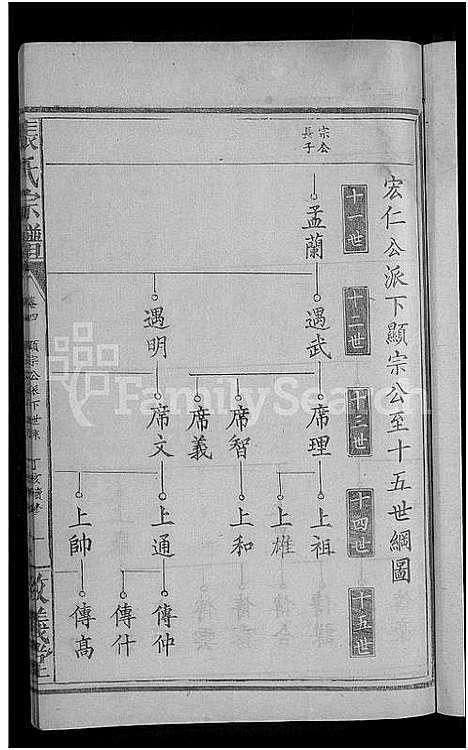 宏仁公派下顯宗公至十五世綱圖
十一世
十二世
十三世
十四世
十五世
宗公
長子
孟蘭
遇武
遇明
席理
席智
席義
席文
上祖
上雄
上和
上通
上帥
傳仲
傳什
傳高
張氏宗譜
卷四 顯宗公派下世系 丁亥續修 一
敦義堂
FamilySearch